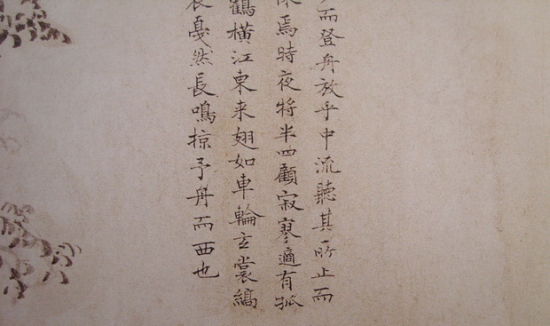 而登舟放乎中流聽其所止而
休焉時夜將半四顧寂寥適有孤
鶴橫江東来翅如車輪玄裳縞
衣戛然長鳴掠予舟而西也